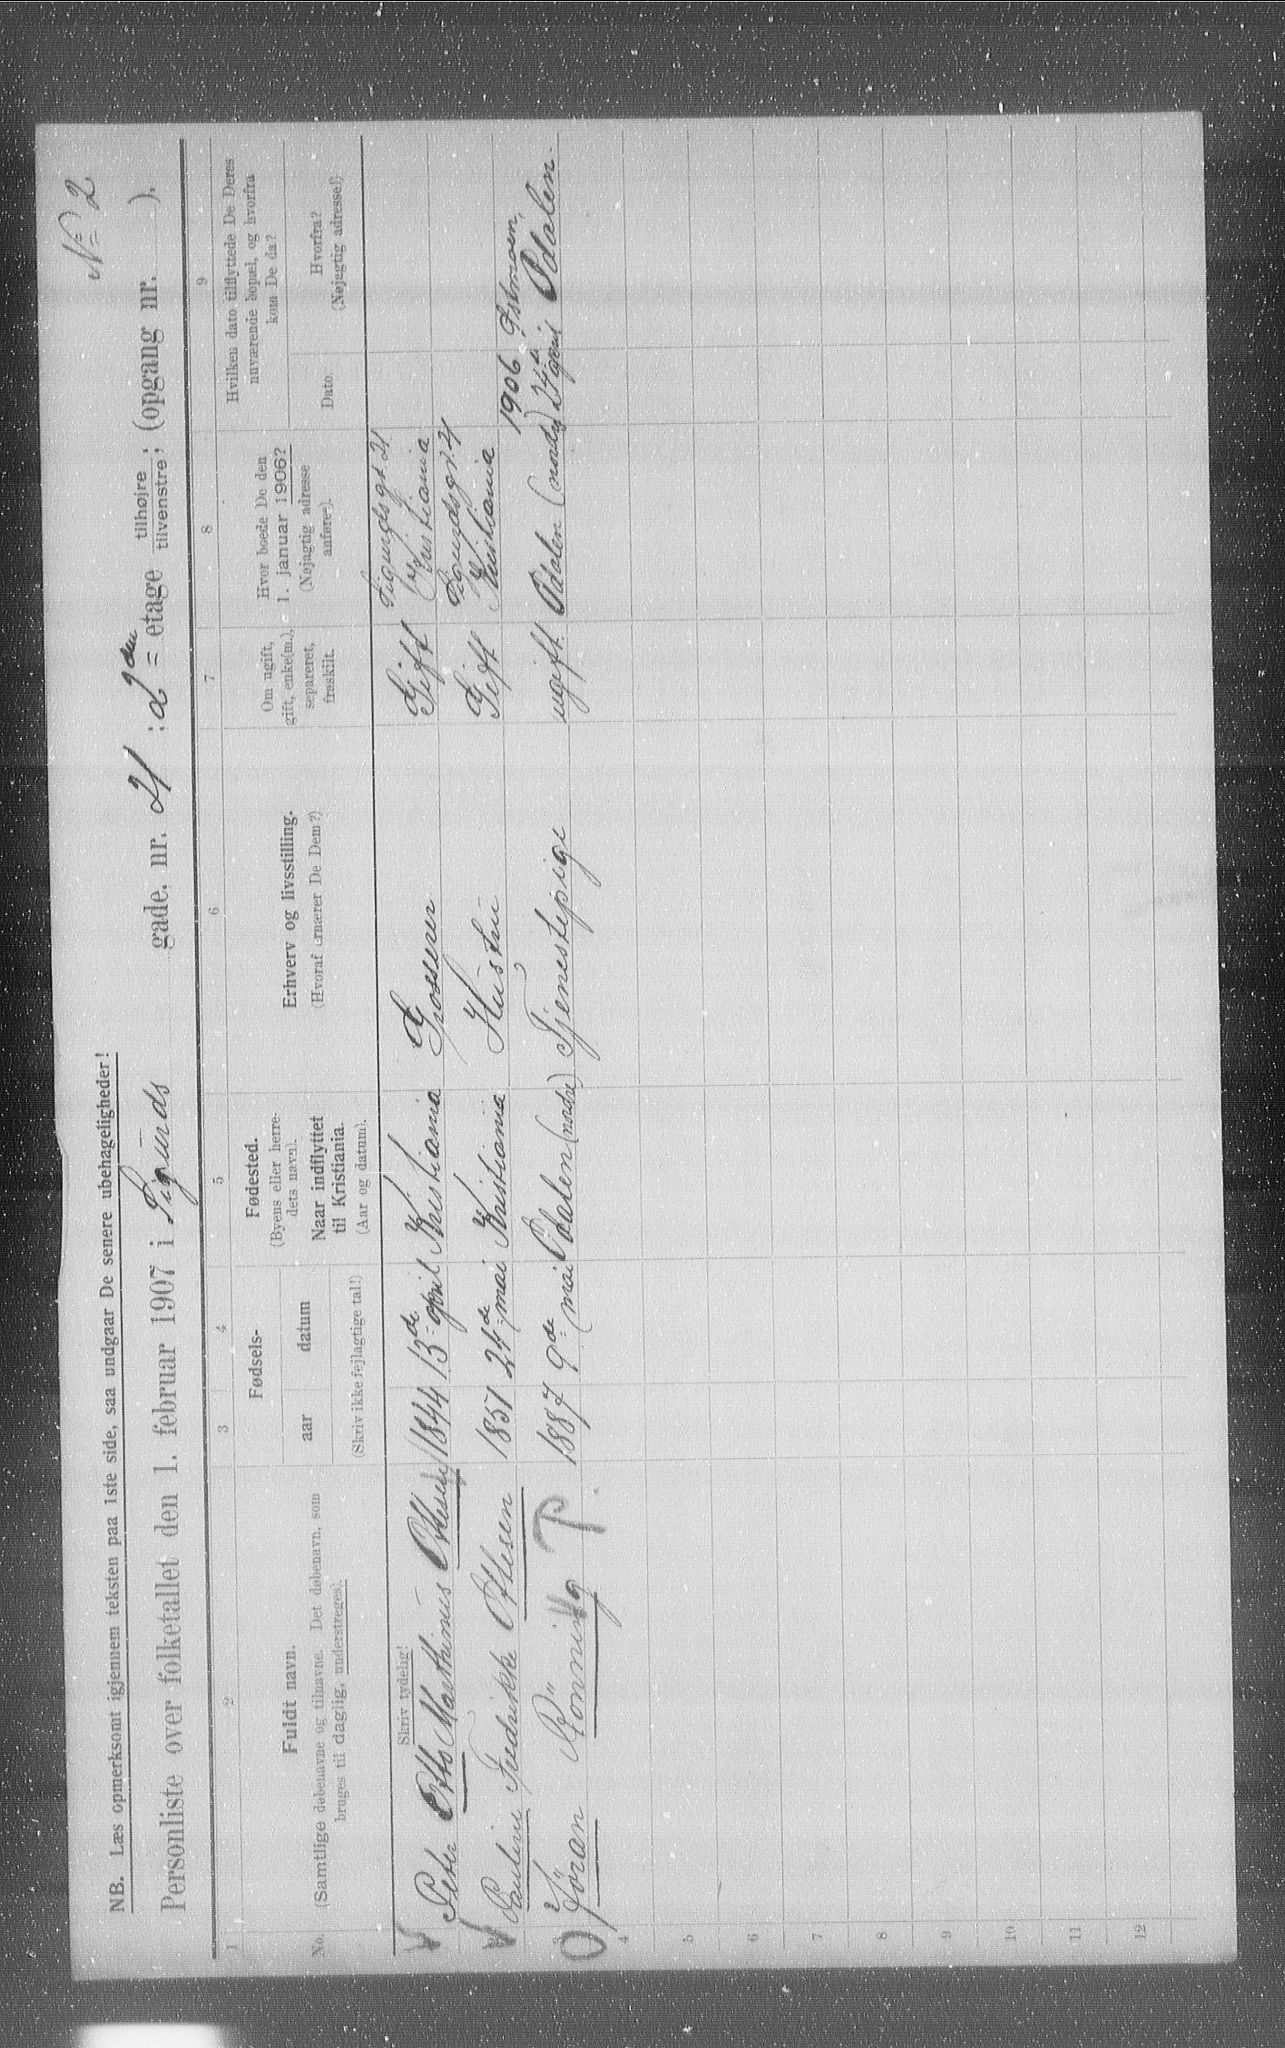 Nº 2
NB. Læs opmerksomt igjennem teksten paa 1ste side, saa undgaar De senere ubehageligheder!
Personliste over folketallet den 1. februar 1907 i Sigurds gade, nr. 21 ; 2den etage tilhøjre / tilvenstre; (opgang nr. ).
1 2 3 4 5 6 7 8 9
No.
Fuldt navn.
(Samtlige døbenavne og tilnavne. Det døbenavn, som
bruges til daglig, understreges).
Fødsels-
aar datum
(Skriv ikke fejlagtige tal!)
Fødested.
(Byens eller herre-
dets navn).
Naar indflyttet
til Kristiania.
(Aar og datum).
Erhverv og livsstilling.
(Hvoraf ernærer De Dem?)
Om ugift,
gift, enke(m.),
separeret,
fraskilt.
Hvor boede De den
1. januar 1906?
(Nøjagtig adresse
anføres).
Hvilken dato tilflyttede De Deres
nuværende bopæl, og hvorfra
kom De da?
Dato.
Hvorfra?
(Nøjagtig adresse!)
Skriv tydelig!
Peter Otto Marthinus Ottesen 1844 13de april Kristiania Grosserer Gift Sigurdsgt 21 Kristiania
Pauline Fredrikke Ottesen 1851 24de mai Kristiania Hustru Gift Sigurdsgt 21 Kristiania
3 Jöran Rönning T. 1887 9de mai Odalen (nordre) Tjenestepige ugift Odalen (nordre) 1906 Odalen.
4
5
6
7
8
9
10
11
12